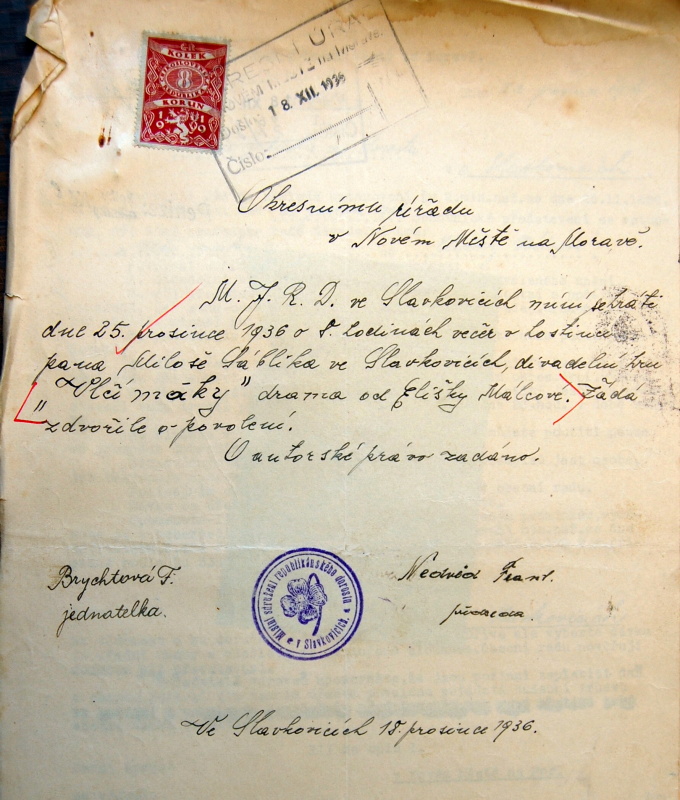 KOLEK
8
KORUN
19 19
OKRESNÍ ÚŘAD
18. XII. 1936
Došlo
Číslo:
Okresnímu úřadu
v Novém Městě na Moravě.
M. J. R. D. ve Slavkovicích míní sehráti
dne 25. prosince 1936 o 8. hodinách večer v hostinci
pana Miloše Sáblíka ve Slavkovicích, divadelní hru
"Vlčí máky" drama od Elišky Málcove. Žádá
zdvořile o povolení.
O autorské právo zadáno.
Brychtová F.
jednatelka.
Nedvěd Frant.
předseda.
Místní sdružení republikánského dorostu
v Slavkovicích.
Ve Slavkovicích 18. prosince 1936.